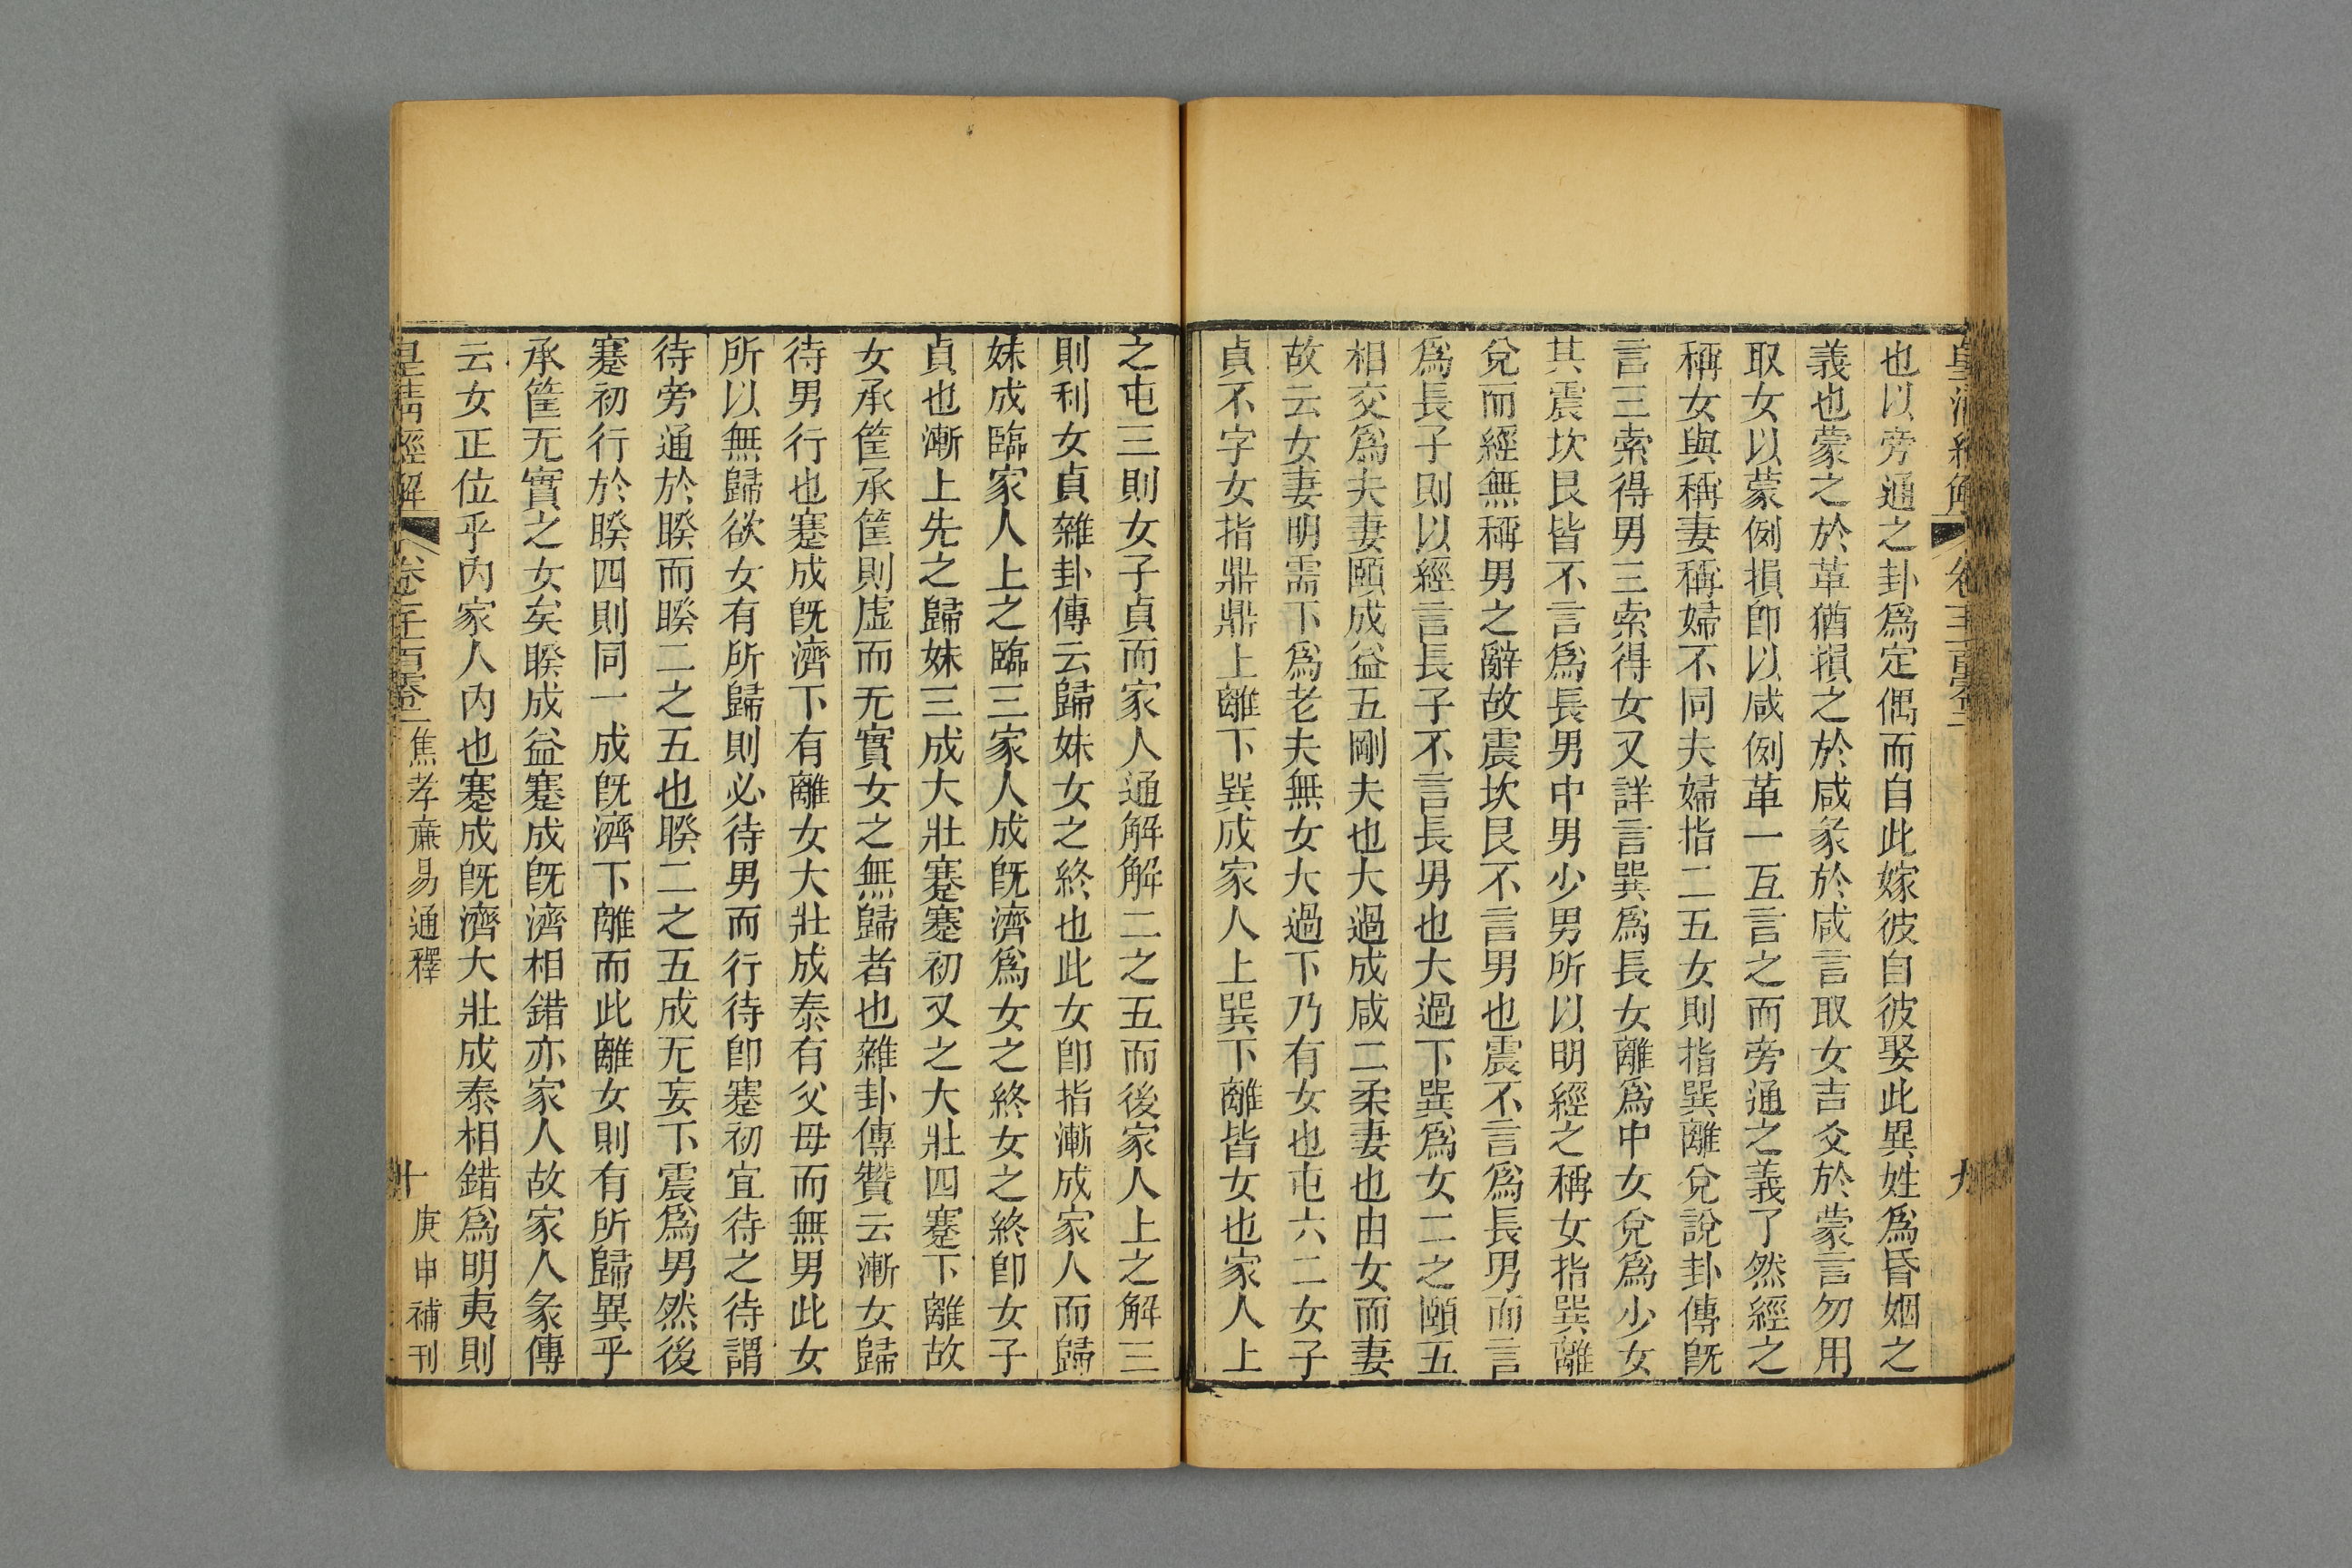 皇清經解 卷二千一百零二 九
也以旁通之卦爲定偶而自此嫁彼自彼娶此異姓爲昏姻之
義也蒙之於革猶損之於咸彖於咸言取女吉爻於蒙言勿用
取女以蒙例損卽以咸例革一互言之而旁通之義了然經之
稱女與稱妻稱婦不同夫婦指二五女則指巽離兌說卦傳旣
言三索得男三索得女又詳言巽爲長女離爲中女兌爲少女
其震坎艮皆不言爲長男中男少男所以明經之稱女指巽離
兌而經無稱男之辭故震坎艮不言男也震不言爲長男而言
爲長子則以經言長子不言長男也大過下巽爲女二之頤五
相交爲夫妻頤成益五剛夫也大過成咸二柔妻也由女而妻
故云女妻明需下爲老夫無女大過下乃有女也屯六二女子
貞不字女指鼎鼎上離下巽成家人上巽下離皆女也家人上
之屯三則女子貞而家人通解解二之五而後家人上之解三
則利女貞雜卦傳云歸妹女之終也此女卽指漸成家人而歸
妹成臨家人上之臨三家人成旣濟爲女之終女之終卽女子
貞也漸上先之歸妹三成大壯蹇蹇初又之大壯四蹇下離故
女承筐承筐則虛而无實女之無歸者也雜卦傳贊云漸女歸
待男行也蹇成旣濟下有離女大壯成泰有父母而無男此女
所以無歸欲女有所歸則必待男而行待卽蹇初宜待之待謂
待旁通於睽而睽二之五也睽二之五成无妄下震爲男然後
蹇初行於睽四則同一成旣濟下離而此離女則有所歸異乎
承筐无實之女矣睽成益蹇成旣濟相錯亦家人故家人彖傳
云女正位乎內家人內也蹇成旣濟大壯成泰相錯爲明夷則
皇清經解 焦孝廉易通釋 十 庚申補刊